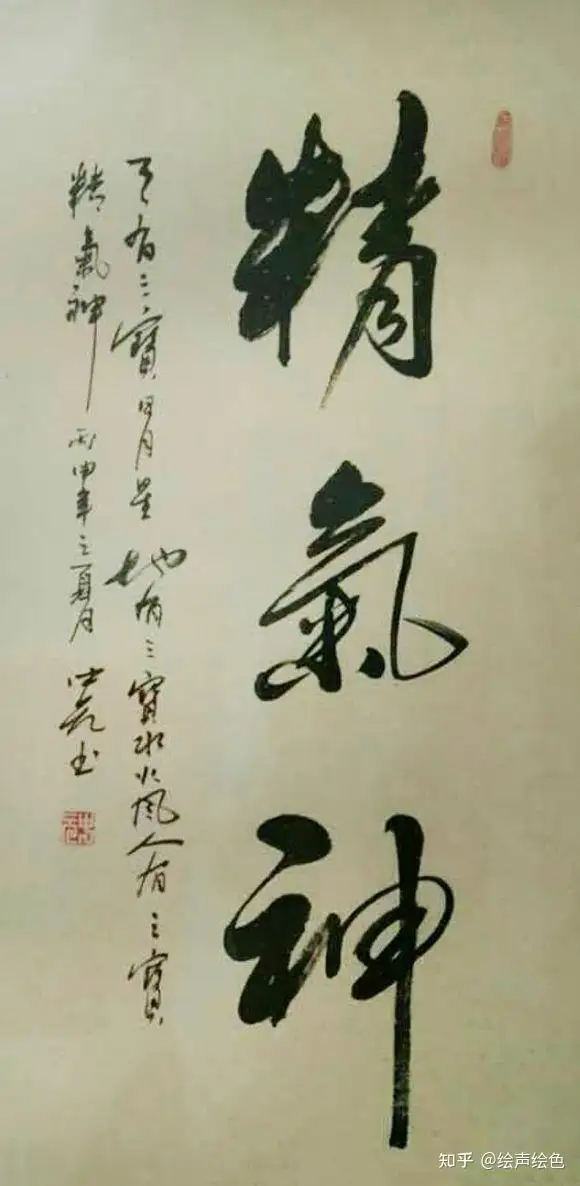 精氣神
天有三寶日月星地有三寶水火風人有三寶
精氣神 丙申年之夏月 世 书
知乎 @绘声绘色